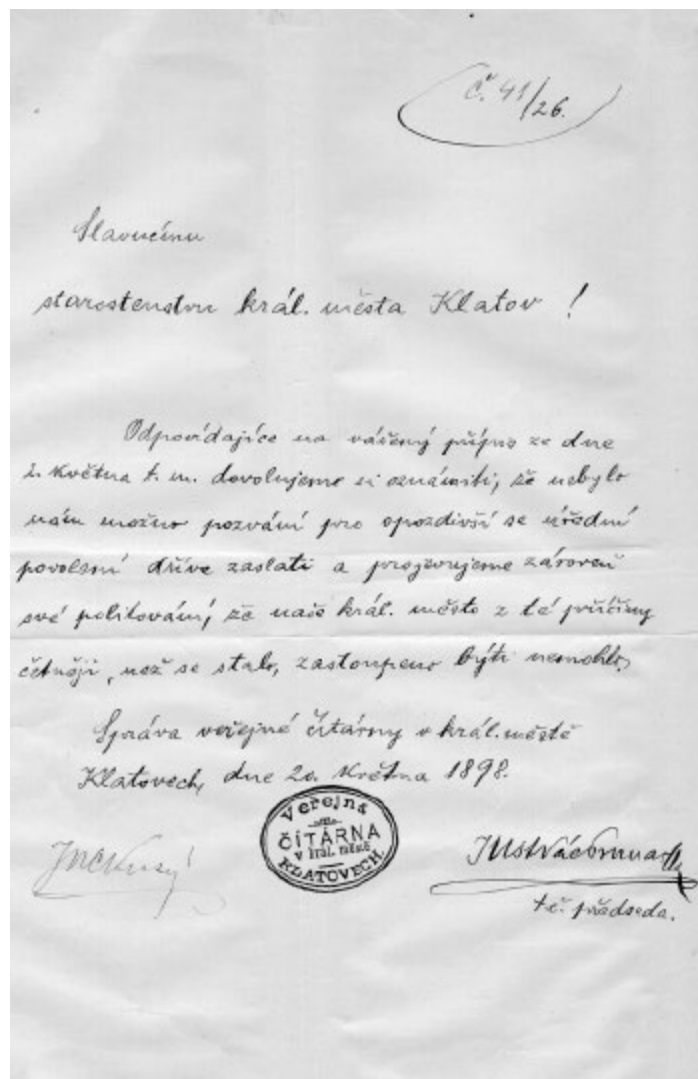 č. 41/26.
Slavnému
starostenstvu král. města Klatov!
Odpovídajíce na vážený přípis ze dne
2. května t. m. dovolujeme si oznámiti, že nebylo
nám možno pozvání pro opozdivší se úřední
povolení dříve zaslati a projevujeme zároveň
své politování, že naše král. město z té příčiny
četněji, než se stalo, zastoupeno býti nemohlo.
Správa veřejné čítárny v král. městě
Klatovech, dne 20. května 1898.
Veřejná
ČÍTÁRNA
v král. městě
KLATOVECH.
t. č. předseda.